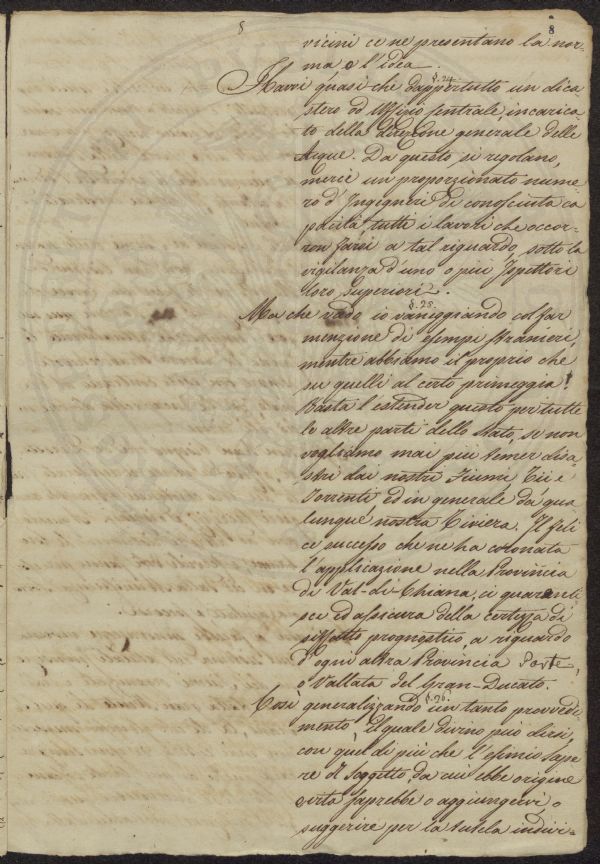 8
8
vicini ce ne presentano la nor-
ma e l'idea.
§. 24.
Havvi quasi che dappertutto un dica-
stero od Uffizio Centrale, incarica-
to della direzione generale delle
Acque. Da questo si regolano,
mercè un proporzionato nume-
ro d'Ingegneri di conosciuta ca
pacità, tutti i lavori che occor-
ron farsi a tal riguardo, sotto la
vigilanza d'uno o più Ispettori
loro superiori.
§. 25.
Ma che vado io vaneggiando col far
menzione di esempi stranieri,
mentre abbiamo il proprio che
su quelli al certo primeggia!
Basta l'estender questo per tutte
le altre parti dello Stato, se non
vogliamo mai più temer disa-
stri dai nostri Fiumi, Rii e
Torrenti ed in generale da qua
lunque nostra Riviera. Il feli
ce successo che ne ha coronata
l'applicazione nella Provincia
di Val-di-Chiana, ci guarenti
sce ed assicura della certezza di
siffatto prognostico, a riguardo
d'ogni altra Provincia Parte,
o Vallata del Gran-Ducato.
§. 26.
Così generalizzando un tanto provvedi-
mento, il quale divino può dirsi,
con quel di più che l'esimio sape
re del Soggetto da cui ebbe origine
saprebbe o aggiungervi, o
suggerire per la tutela indivi-